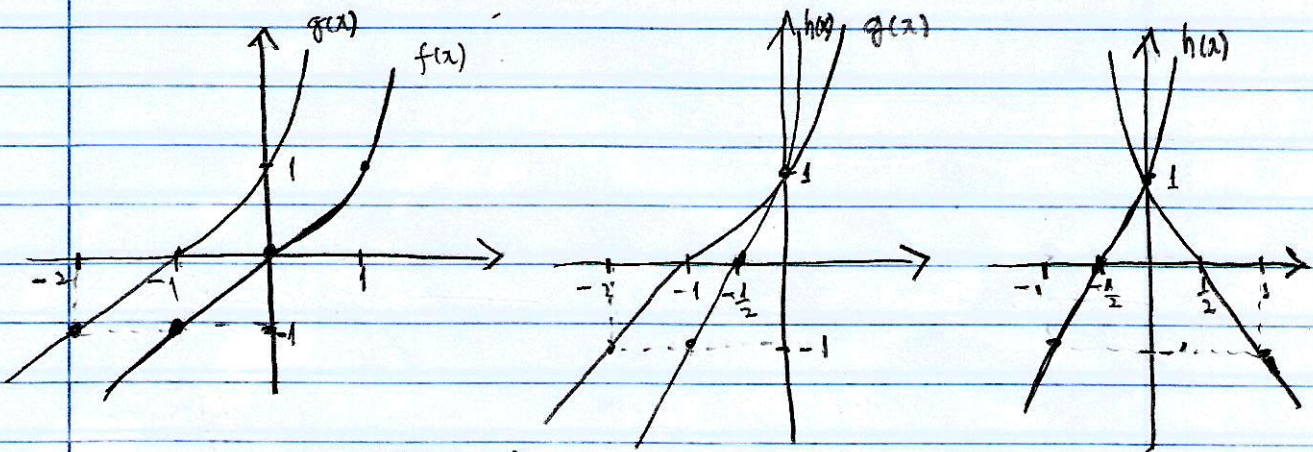 g(x)
f(x)
1
-2
-1
1
-1
h(x)
g(x)
1
-2
-1
-1/2
-1
h(x)
1
-1
-1/2
1/2
1